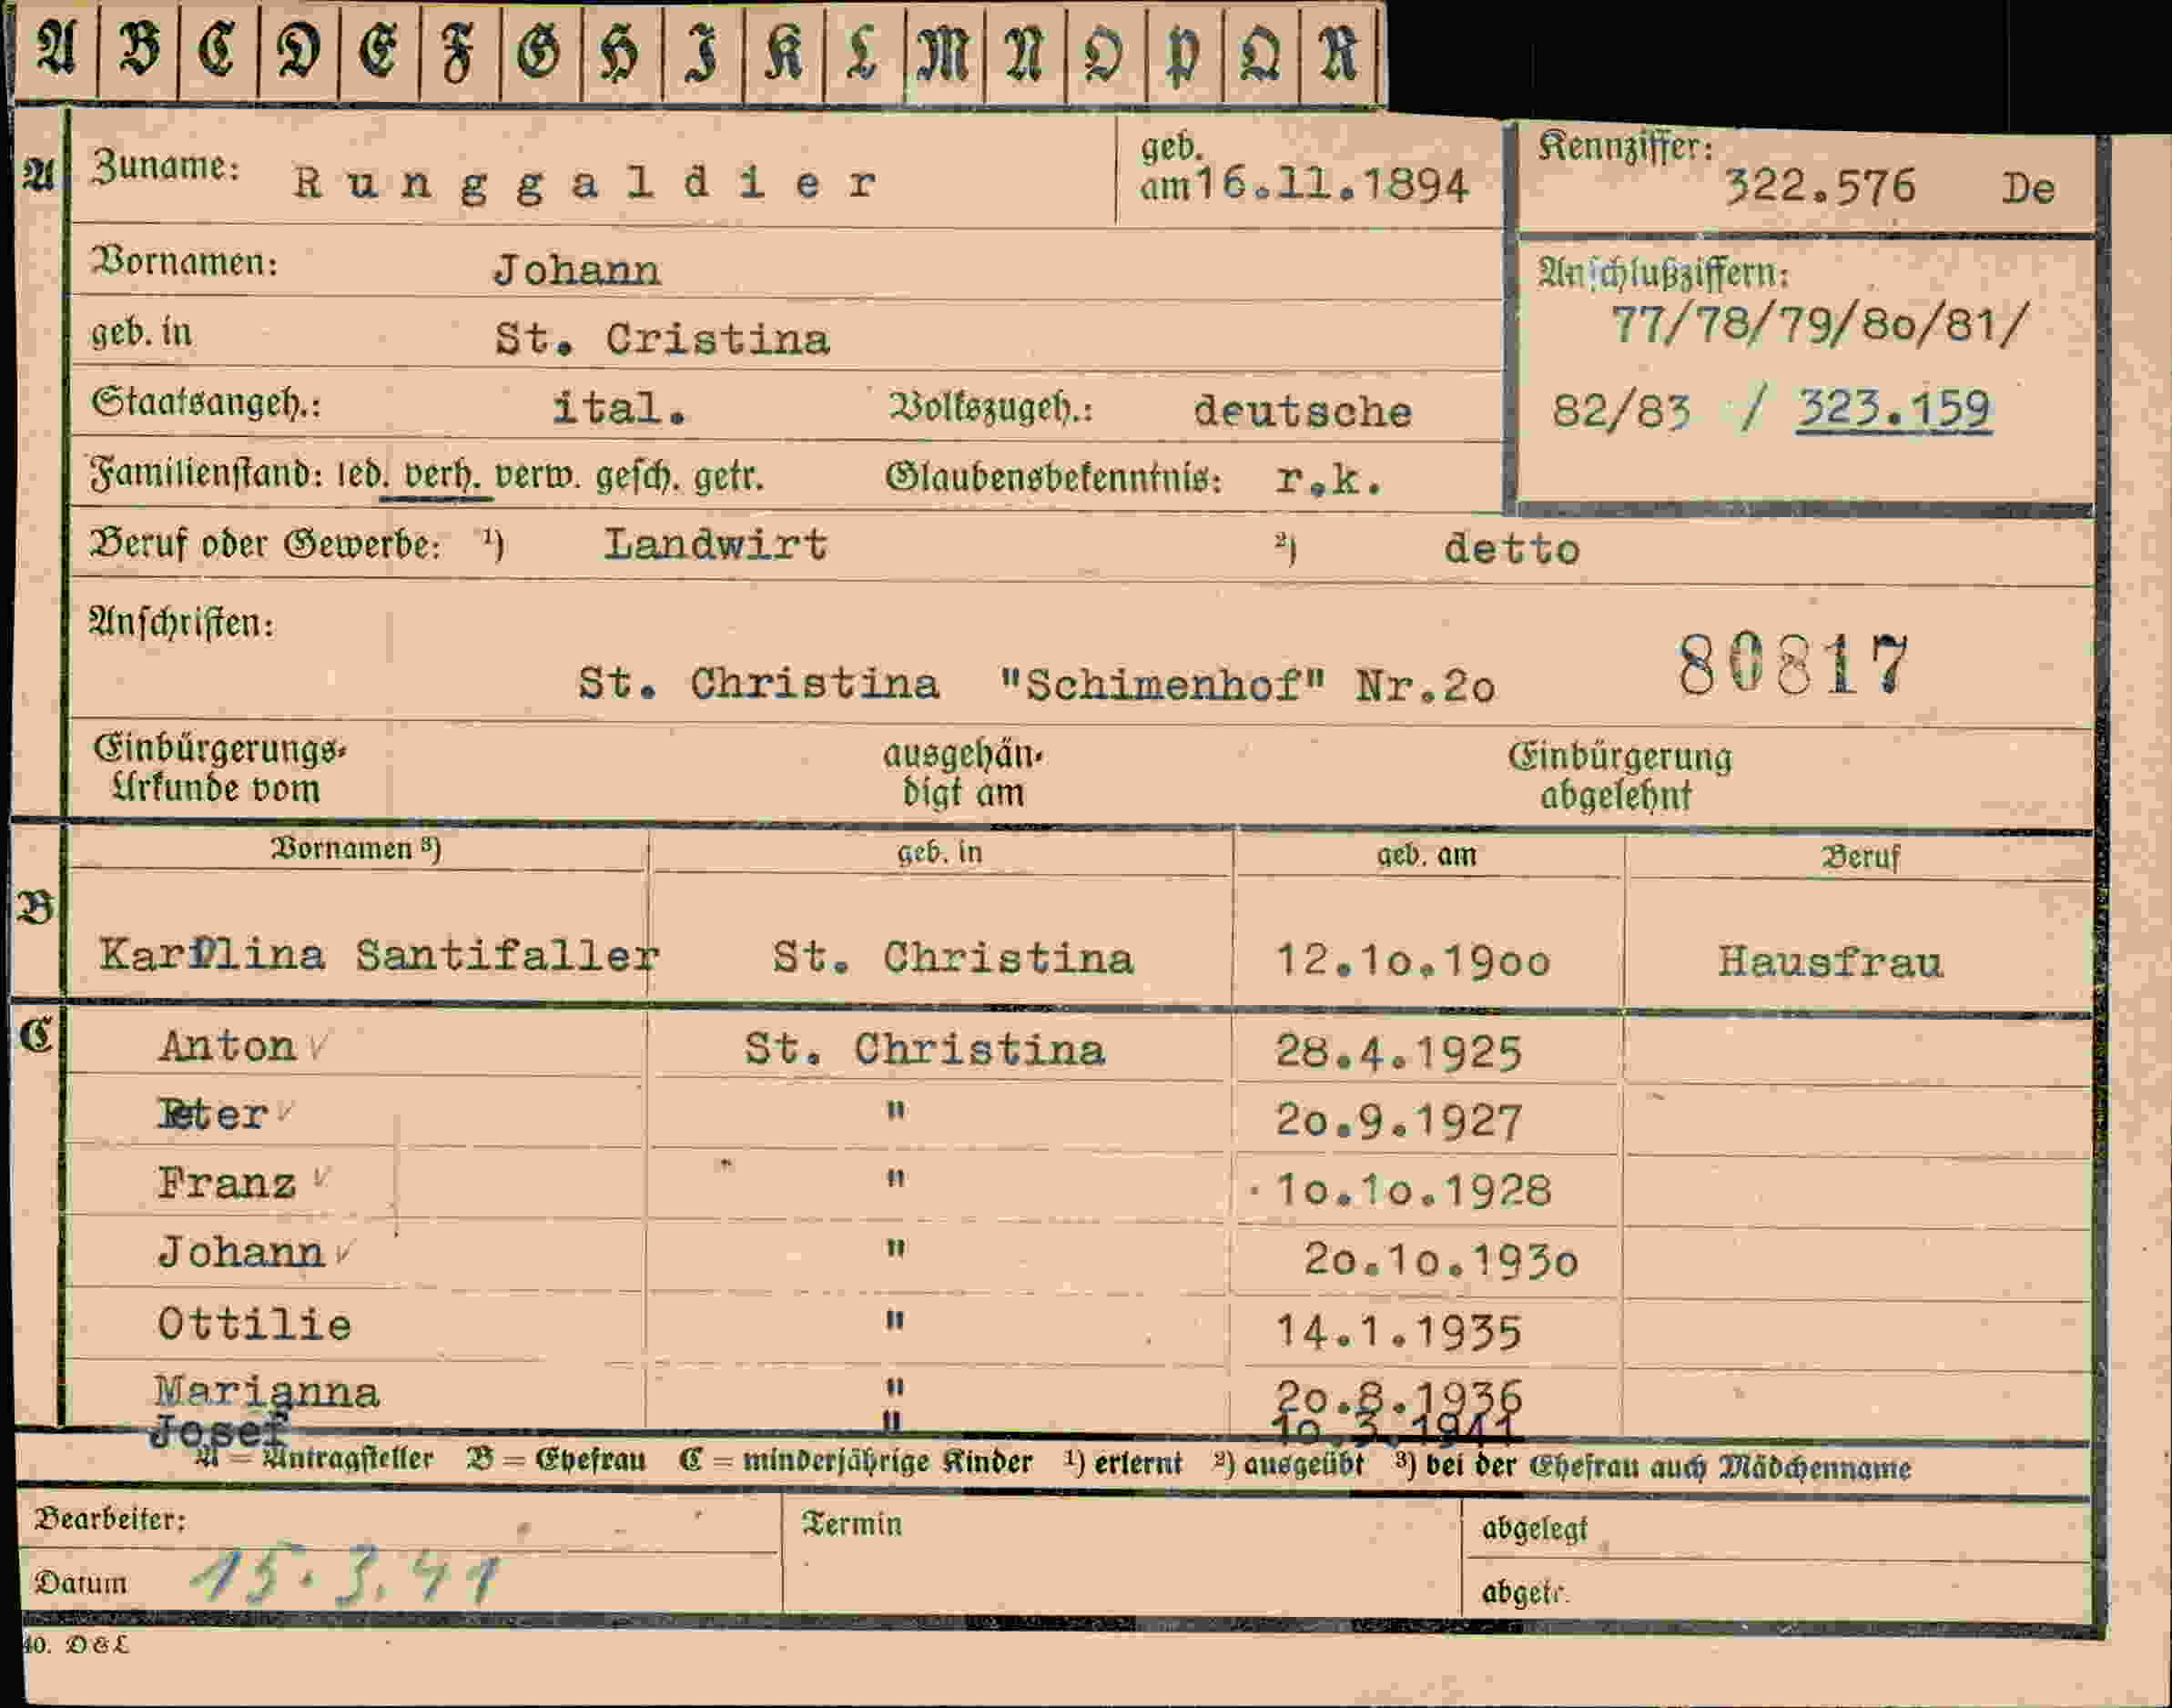 A B C D E F G H I K L M N O P Q R
A Zuname: Runggaldier geb. am 16.11.1894 Kennziffer: 322.576 De
Vornamen: Johann
Anschlußziffern:
geb. in St. Cristina 77/78/79/80/81/
Staatsangeh.: ital. Volkszugeh.: deutsche 82/83 / 323.159
Familienstand: led. verh. verw. gesch. getr. Glaubensbekenntnis: r.k.
Beruf oder Gewerbe: ¹) Landwirt ²) detto
Anschriften:
St. Christina "Schimenhof" Nr.2o 80817
Einbürgerungs- ausgehän- Einbürgerung
Urkunde vom digt am abgelehnt
Vornamen ³) geb. in geb. am Beruf
B
Karolina Santifaller St. Christina 12.1o.19oo Hausfrau
C Anton St. Christina 28.4.1925
Peter " 2o.9.1927
Franz " 1o.1o.1928
Johann " 2o.1o.193o
Ottilie " 14.1.1935
Marianna " 2o.8.1936
Josef " 1o.3.1941
A = Antragsteller B = Ehefrau C = minderjährige Kinder ¹) erlernt ²) ausgeübt ³) bei der Ehefrau auch Mädchenname
Bearbeiter: Termin abgelegt
Datum 15.3.41 abgetr.
40. D&L